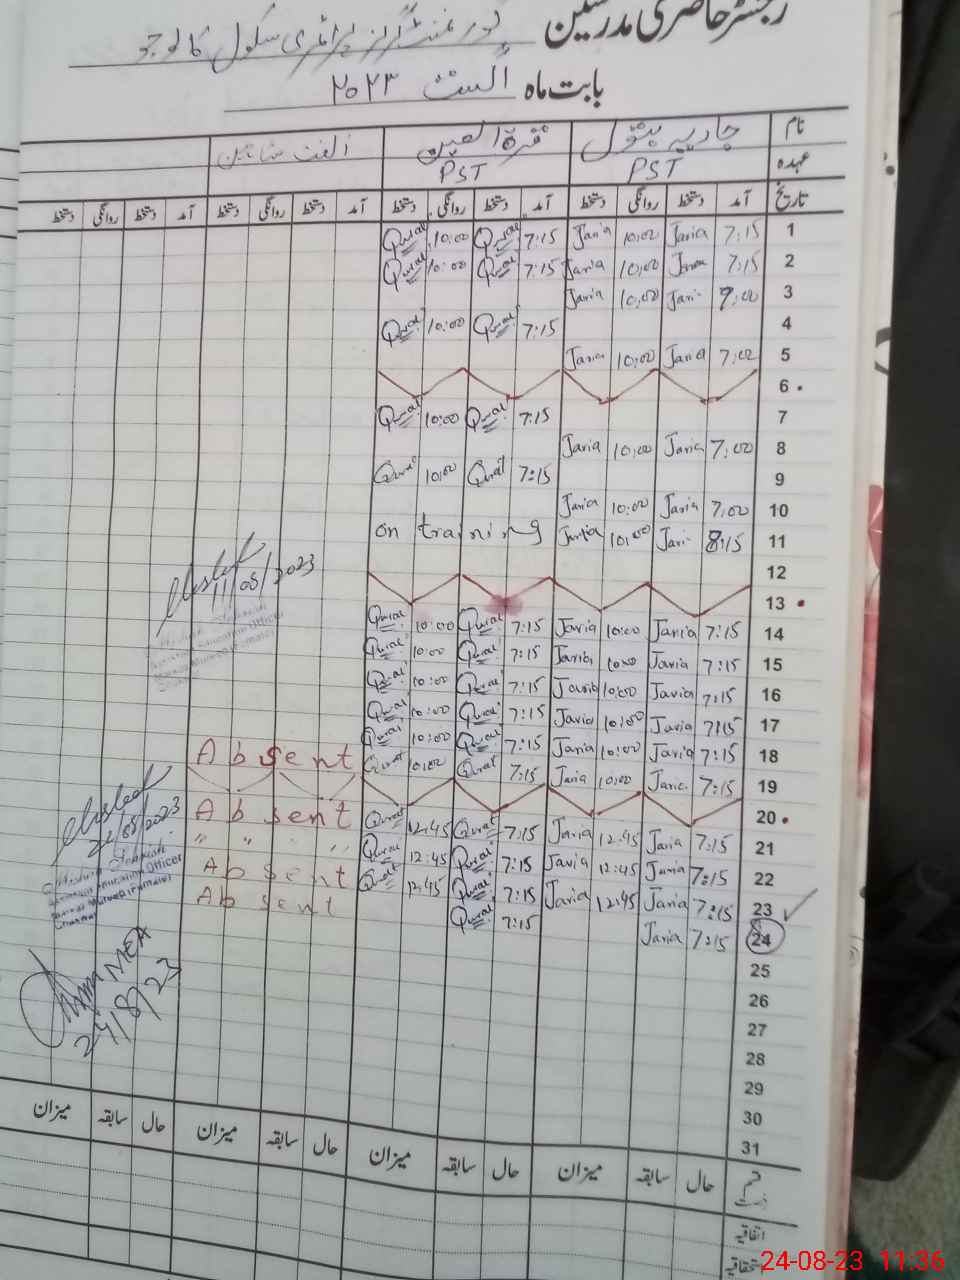 رجسٹر حاضری مدرسین گورنمنٹ گرلز پرائمری سکول
بابت ماہ اگست ۲۰۲۳
نام جاریہ بتول قرۃ العین الفت شاہین
عہدہ PST PST
تاریخ آمد دستخط روانگی دستخط آمد دستخط روانگی دستخط آمد دستخط روانگی دستخط آمد دستخط روانگی دستخط
1 7:15 Jaria 10:00 Jaria 7:15 Qurat 10:00 Qurat
2 7:15 Jaria 10:00 Jaria 7:15 Qurat 10:00 Qurat
3 7:00 Jaria 10:00 Jaria
4 7:15 Qurat 10:00 Qurat
5 7:00 Jaria 10:00 Jaria
6
7 7:15 Qurat 10:00 Qurat
8 7:00 Jaria 10:00 Jaria
9 7:15 Qurat 10:00 Qurat
10 7:00 Jaria 10:00 Jaria
11 8:15 Jaria 10:00 Jaria on training
12
13
14 7:15 Jaria 10:00 Jaria 7:15 Qurat 10:00 Qurat
15 7:15 Jaria 10:00 Jaria 7:15 Qurat 10:00 Qurat
16 7:15 Jaria 10:00 Jaria 7:15 Qurat 10:00 Qurat
17 7:15 Jaria 10:00 Jaria 7:15 Qurat 10:00 Qurat
18 7:15 Jaria 10:00 Jaria 7:15 Qurat 10:00 Qurat
19 7:15 Jaria 10:00 Jaria 7:15 Qurat 10:00 Qurat Absent
20
21 7:15 Jaria 12:45 Jaria 7:15 Qurat 12:45 Qurat Absent
22 7:15 Jaria 12:45 Jaria 7:15 Qurat 12:45 Qurat " " " "
23 7:15 Jaria 12:45 Jaria 7:15 Qurat 12:45 Qurat Absent
24 7:15 Jaria 7:15 Qurat Absent
25
26
27
28
29
30
31
11/08/2023
Assistant Education Officer
22/08/2023
Assistant Education Officer
MEA
24/8/23
حال سابقہ میزان حال سابقہ میزان حال سابقہ میزان حال سابقہ میزان
اتفاقیہ
استحقاقیہ
24-08-23 11:36